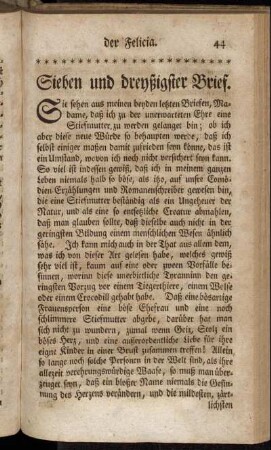 der Felicia. 44
Sieben und dreyßigster Brief.
Sie sehen aus meinen beyden letzten Briefen, Ma-
dame, daß ich zu der unerwarteten Ehre eine
Stiefmutter zu werden gelanget bin; ob ich
aber diese neue Würde so behaupten werde, daß ich
selbst einiger maßen damit zufrieden seyn könne, das ist
ein Umstand, wovon ich noch nicht versichert seyn kann.
So viel ist indessen gewiß, daß ich in meinem ganzen
Leben niemals halb so böse, als itzo, auf unsre Comö-
dien Erzählungen und Romanenschreiber gewesen bin,
die eine Stiefmutter beständig als ein Ungeheuer der
Natur, und als eine so entsetzliche Creatur abmahlen,
daß man glauben sollte, daß dieselbe auch nicht in der
geringsten Bildung einem menschlichen Wesen ähnlich
sähe. Ich kann mich auch in der That aus allem dem,
was ich von dieser Art gelesen habe, welches gewiß
sehr viel ist, kaum auf eine oder zween Vorfälle be-
sinnen, worinn diese unerbittliche Tyranninn den ge-
ringsten Vorzug vor einem Tiegerthiere, einem Wolfe
oder einem Crocodill gehabt habe. Daß eine bösartige
Frauensperson eine böse Ehefrau und eine noch
schlimmere Stiefmutter abgebe, darüber hat man
sich nicht zu wundern, zumal wenn Geiz, Stolz ein
böses Herz, und eine außerordentliche Liebe für ihre
eigne Kinder in einer Brust zusammen treffen! Allein
so lange noch solche Personen in der Welt sind, als ihre
allezeit verehrungswürdige Baase, so muß man über-
zeuget seyn, daß ein bloßer Name niemals die Gesin-
nung des Herzens verändern, und die mildesten, zärt-
lichsten